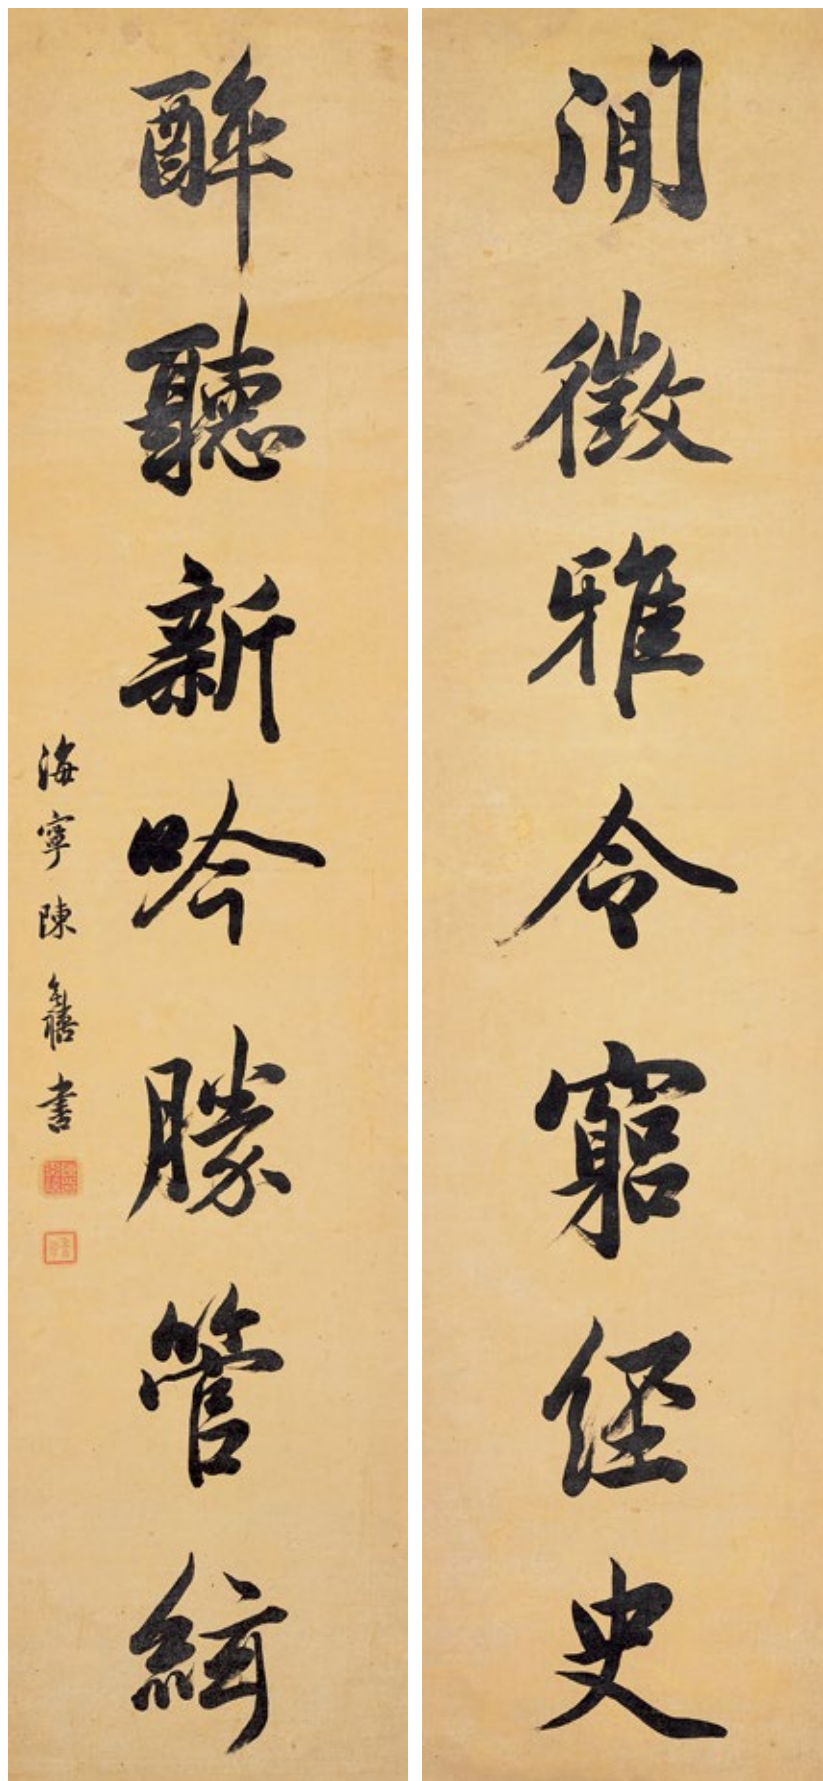 閒徵雅令窮經史
醉聽新吟勝管絃
海寧陳奕禧書